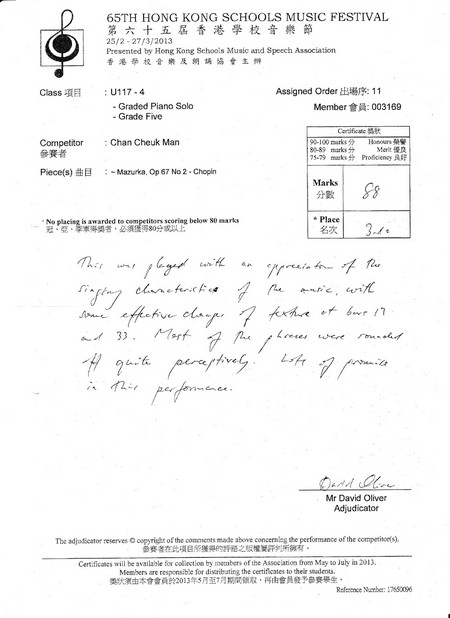 65TH HONG KONG SCHOOLS MUSIC FESTIVAL
第六十五屆香港學校音樂節
25/2 - 27/3/2013
Presented by Hong Kong Schools Music and Speech Association
香港學校音樂及朗誦協會主辦
Class 項目 : U117 - 4
- Graded Piano Solo
- Grade Five
Assigned Order 出場序: 11
Member 會員: 003169
Competitor : Chan Cheuk Man
參賽者
Piece(s) 曲目 : ~ Mazurka, Op 67 No 2 - Chopin
Certificate 獎狀
90-100 marks 分 Honours 榮譽
80-89 marks 分 Merit 優良
75-79 marks 分 Proficiency 良好
Marks 88
分數
* Place 3rd
名次
* No placing is awarded to competitors scoring below 80 marks
冠、亞、季軍得獎者，必須獲得80分或以上
This was played with an appreciation of the
singing characteristics of the music, with
some effective changes of texture at bars 17
and 33. Most of the phrases were rounded
off quite perceptively. Lots of promise
in this performance.
David Oliver
Mr David Oliver
Adjudicator
The adjudicator reserves © copyright of the comments made above concerning the performance of the competitor(s).
參賽者在此項目所獲得的評語之版權屬評判所擁有。
Certificates will be available for collection by members of the Association from May to July in 2013.
Members are responsible for distributing the certificates to their students.
獎狀須由本會會員於2013年5月至7月期間領取，再由會員發予參賽學生。
Reference Number: 17650096